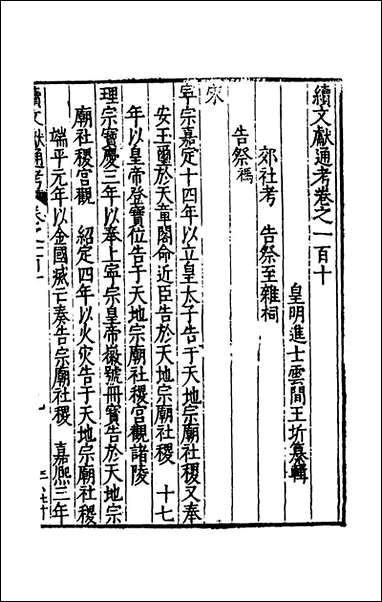 續文獻通考卷之一百十
皇明進士雲間王圻纂輯
郊社考　告祭至雜祠
告祭禡
宋
寧宗嘉定十四年以立皇太子告于天地宗廟社稷又奉
安玉璽於天章閣命近臣告於天地宗廟社稷　十七
年以皇帝登寶位告于天地宗廟社稷宮觀諸陵
理宗寶慶三年以奉上寧宗皇帝徽號冊寶告於天地宗
廟社稷宮觀　紹定四年以火災告于天地宗廟社稷
端平元年以金國滅亡奏告宗廟社稷　嘉熙三年
續文獻通考